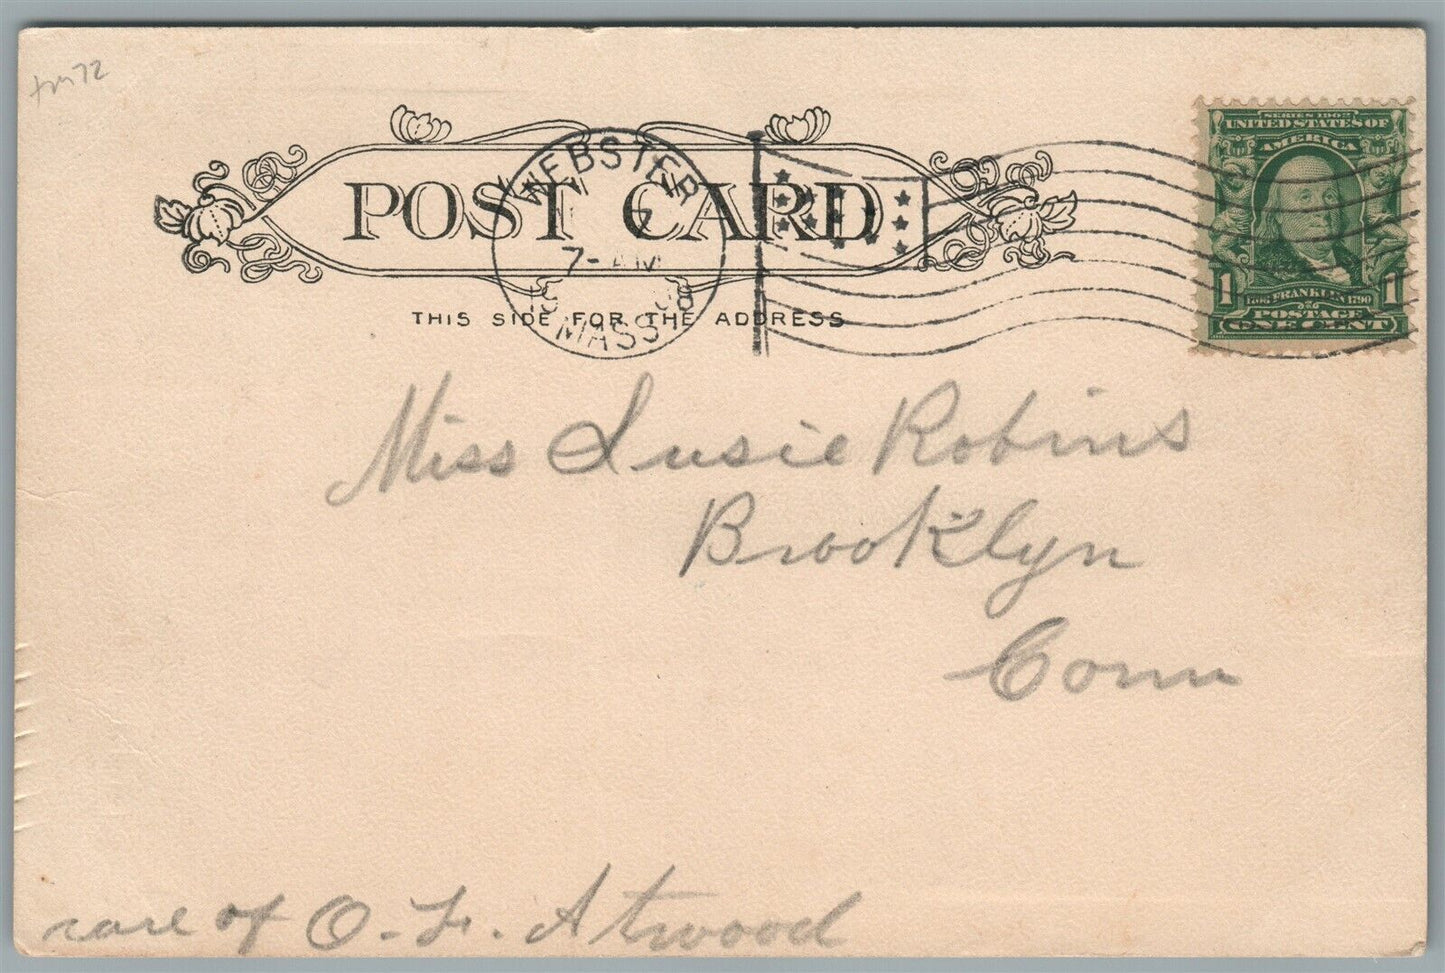 POST CARD
WEBSTER
7
7-AM
1908
MASS.
THIS SIDE FOR THE ADDRESS
SERIES 1902
UNITED STATES OF
AMERICA
1 1706 FRANKLIN 1790 1
POSTAGE
ONE CENT
Miss Susie Robins
Brooklyn
Conn
care of O. F. Atwood